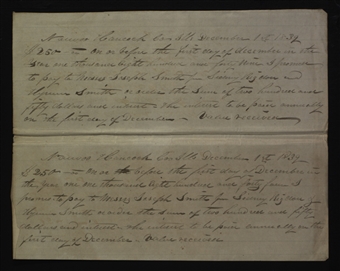 Nauvoo Hancock Co Ills December 1st 1839
$250 — On or before the first day of December in the
year one thousand eight hundred and forty I promise
to pay to Joseph Smith Sidney Rigdon and
Hyrum Smith or order the sum of two hundred and
fifty dollars and interest the interest to be paid annually
on the first day of December value received
Nauvoo Hancock Co Ills December 1st 1839
$250 — On or before the first day of December in
the year one thousand eight hundred and forty I
promise to pay to Joseph Smith Sidney Rigdon
Hyrum Smith or order the sum of two hundred and fifty
dollars and interest the interest to be paid annually on the
first day of December value received